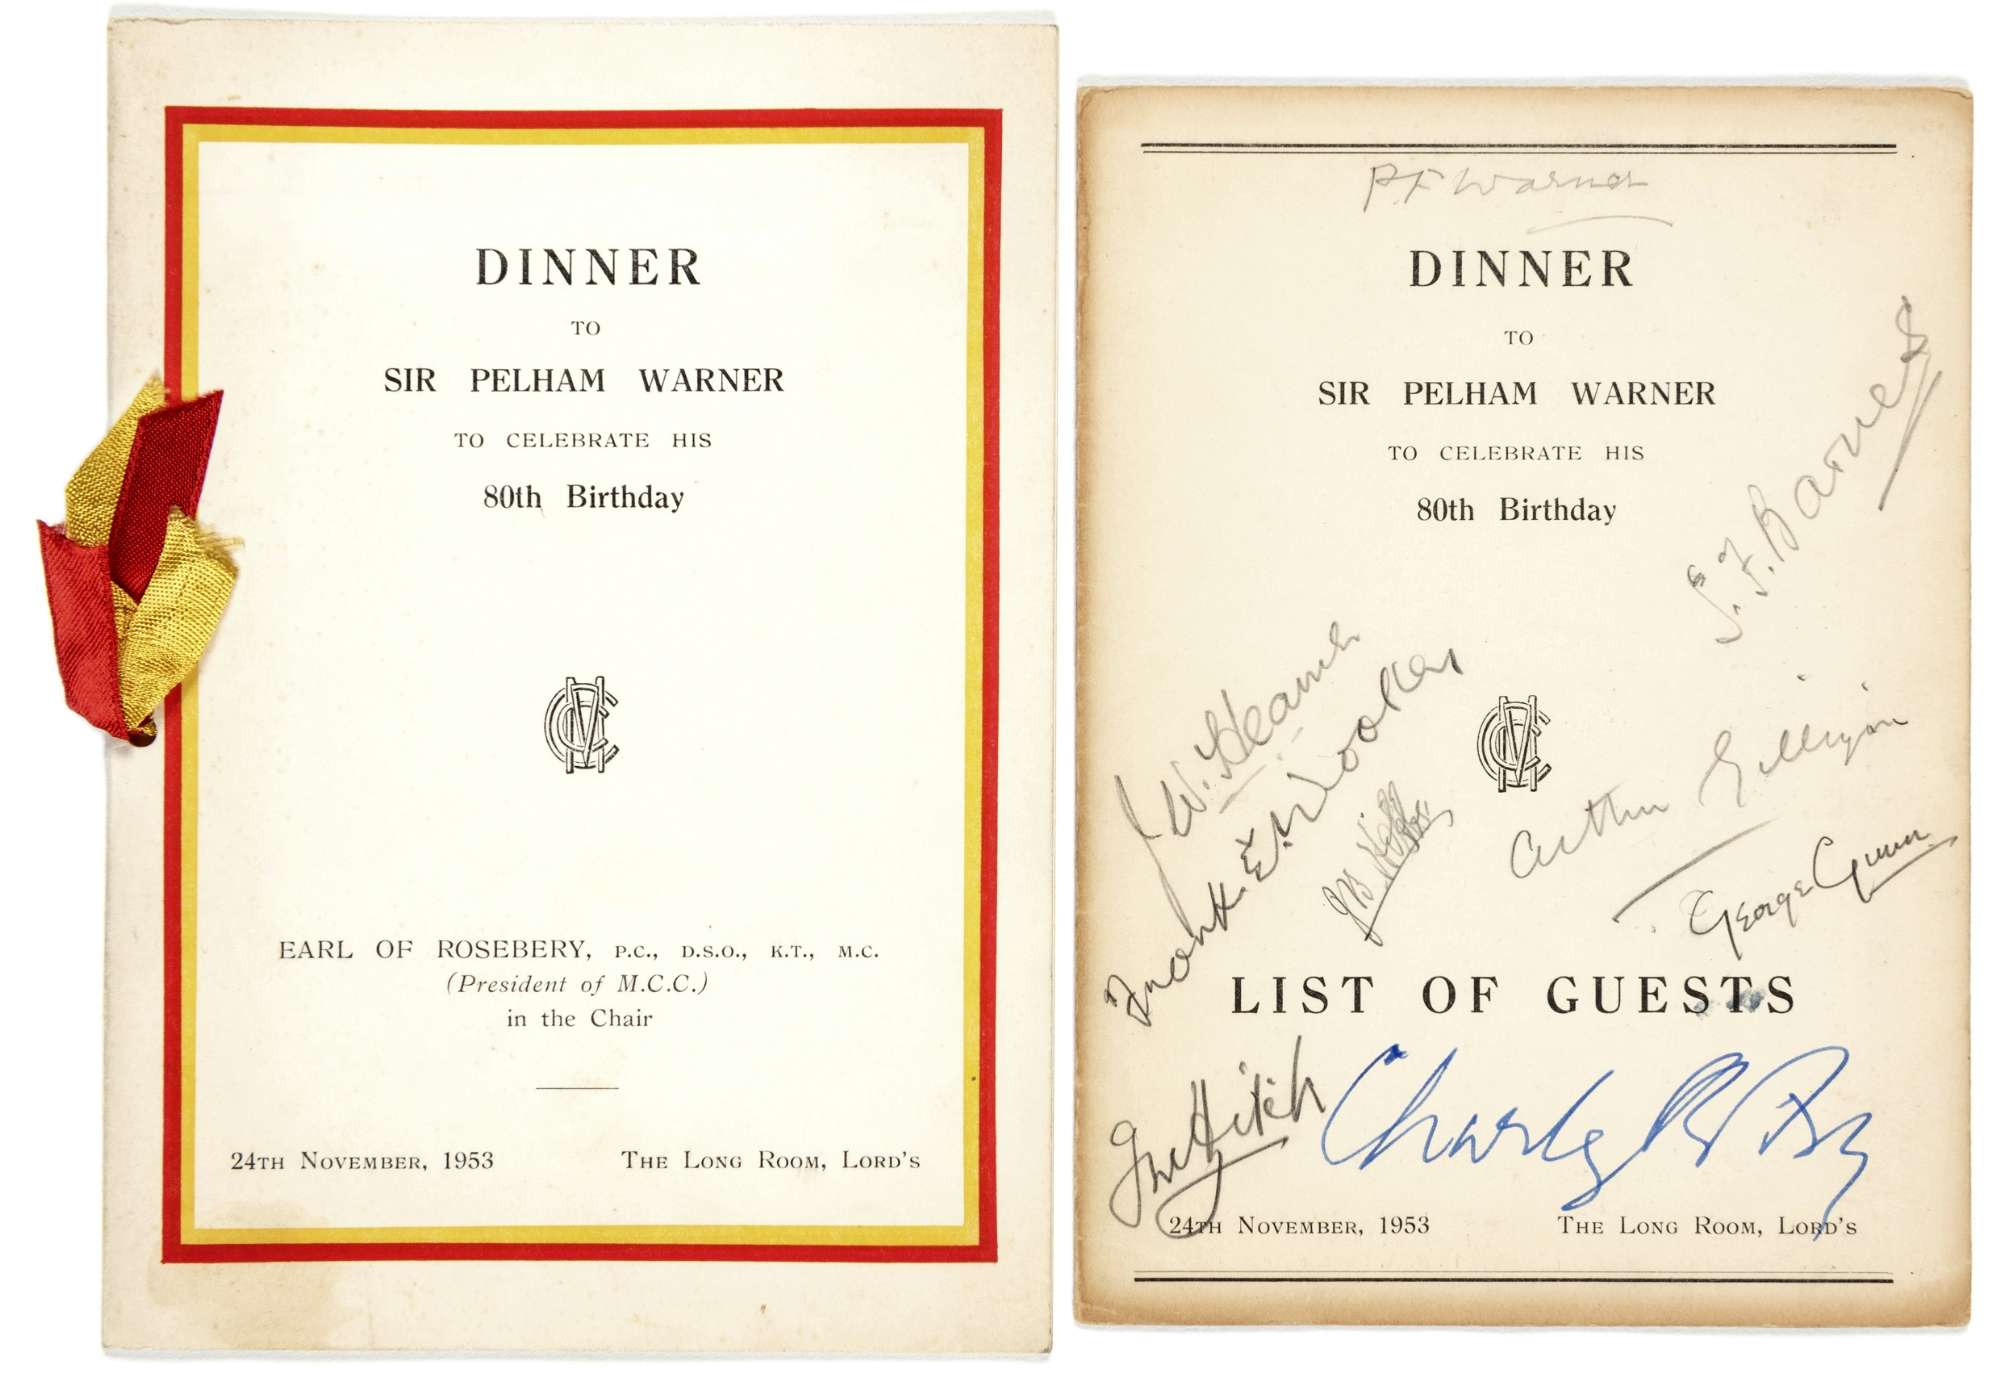 DINNER
TO
SIR PELHAM WARNER
TO CELEBRATE HIS
80th Birthday
MCC
EARL OF ROSEBERY, P.C., D.S.O., K.T., M.C.
(President of M.C.C.)
in the Chair
24TH NOVEMBER, 1953 THE LONG ROOM, LORD'S
P.F Warner
DINNER
TO
SIR PELHAM WARNER
TO CELEBRATE HIS
80th Birthday
S.F. Barnes
J. W. Hearne
Frank E. Woolley
MCC
J B Hobbs
Arthur Gilligan
George Gunn
LIST OF GUESTS
J W Hitch
Charles B Fry
24TH NOVEMBER, 1953 THE LONG ROOM, LORD'S